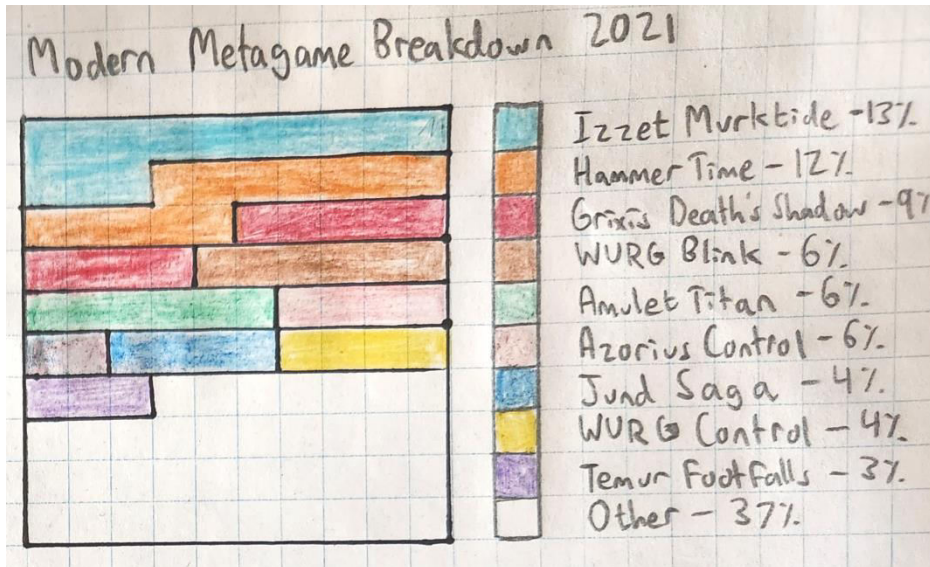 Modern Metagame Breakdown 2021
Izzet Murktide - 13%
Hammer Time - 12%
Grixis Death's Shadow - 9%
WURG Blink - 6%
Amulet Titan - 6%
Azorius Control - 6%
Jund Saga - 4%
WURG Control - 4%
Temur Footfalls - 3%
Other - 37%